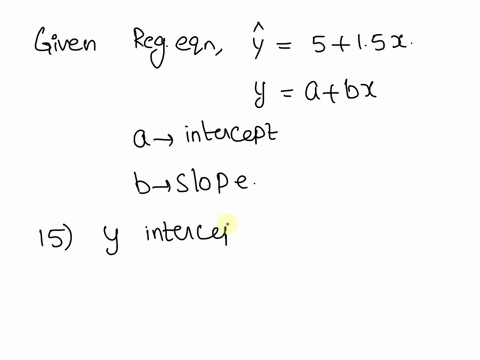 Given Reg. eqn, ŷ = 5 + 1.5x.
y = a + bx
a → intercept
b → slope.
15) y intercep